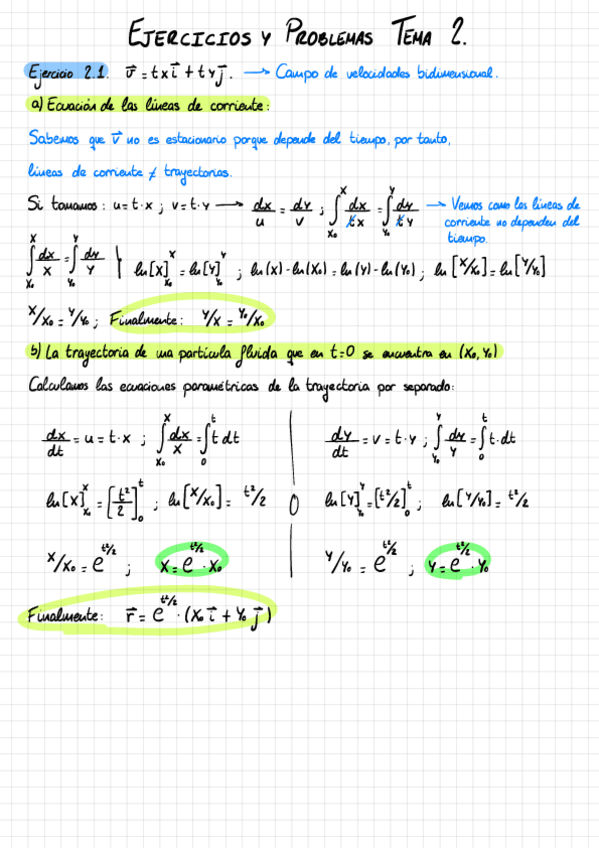 EJERCICIOS Y PROBLEMAS TEMA 2.
Ejercicio 2.1. v⃗ = t x i⃗ + t y j⃗. → Campo de velocidades bidimensional.
a) Ecuación de las líneas de corriente:
Sabemos que v⃗ no es estacionario porque depende del tiempo, por tanto,
líneas de corriente ≠ trayectorias.
Si tomamos: u = t·x ; v = t·y → dx/u = dy/v ; ∫_{x₀}^{x} dx/tx = ∫_{y₀}^{y} dy/ty → Vemos como las líneas de
corriente no dependen del
tiempo.
∫_{x₀}^{x} dx/x = ∫_{y₀}^{y} dy/y | ln[x]_{x₀}^{x} = ln[y]_{y₀}^{y} ; ln(x) - ln(x₀) = ln(y) - ln(y₀) ; ln[x/x₀] = ln[y/y₀]
x/x₀ = y/y₀ ; Finalmente: y/x = y₀/x₀
b) La trayectoria de una partícula fluida que en t=0 se encuentra en (x₀, y₀)
Calculamos las ecuaciones paramétricas de la trayectoria por separado:
dx/dt = u = t·x ; ∫_{x₀}^{x} dx/x = ∫_{0}^{t} t dt
dy/dt = v = t·y ; ∫_{y₀}^{y} dy/y = ∫_{0}^{t} t·dt
ln[x]_{x₀}^{x} = [t²/2]_{0}^{t} ; ln[x/x₀] = t²/2
ln[y]_{y₀}^{y} = [t²/2]_{0}^{t} ; ln[y/y₀] = t²/2
x/x₀ = e^{t²/2} ; x = e^{t²/2} · x₀
y/y₀ = e^{t²/2} ; y = e^{t²/2} · y₀
Finalmente: r⃗ = e^{t²/2} · (x₀ i⃗ + y₀ j⃗)